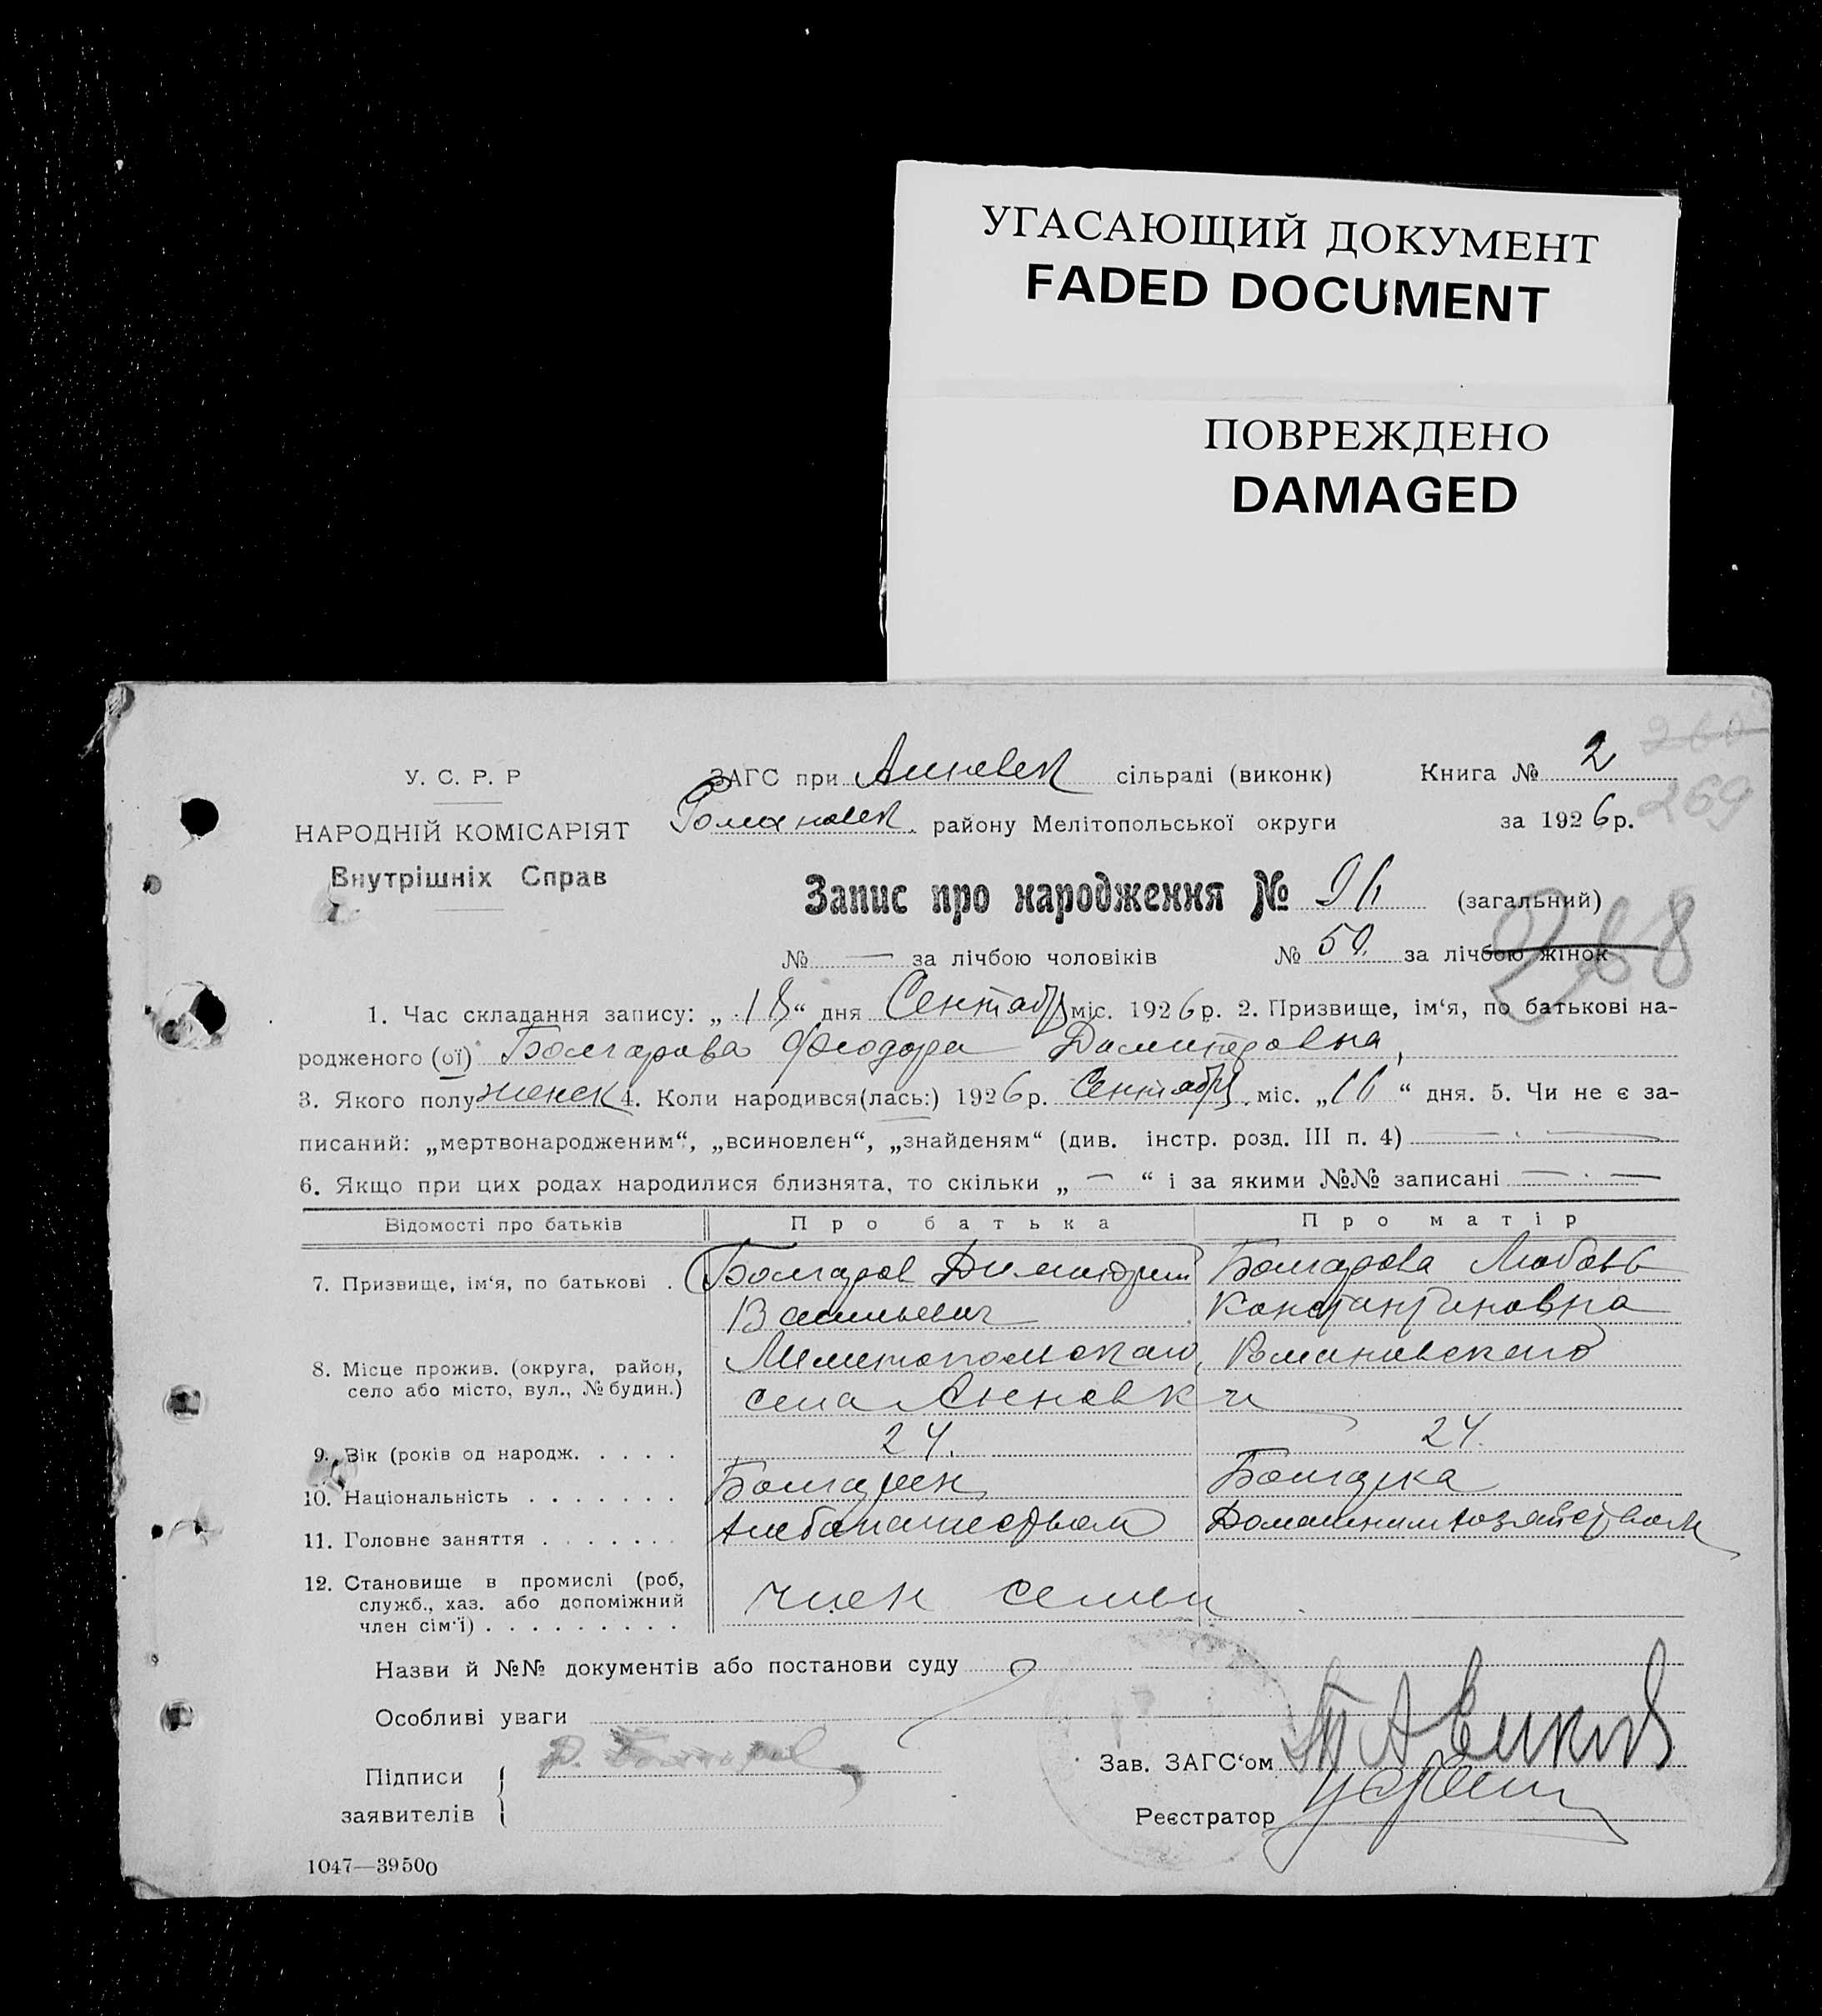 УГАСАЮЩИЙ ДОКУМЕНТ
FADED DOCUMENT
ПОВРЕЖДЕНО
DAMAGED
269
У. С. Р. Р
НАРОДНІЙ КОМІСАРІЯТ
Внутрішніх Справ
ЗАГС при Анновск сільраді (виконк) Книга № 2
Романовск. району Мелітопольської округи за 1926 р.
Запис про народження № (загальний)
268
№ — за лічбою чоловіків № 50. за лічбою жінок
1. Час складання запису: „18“ дня Сентабр міс. 1926 р. 2. Призвище, ім‘я, по батькові на-
родженого (ої) Болгарова Феодора Димитровна,
3. Якого полу женск 4. Коли народився(лась:) 1926 р. Сентабр міс. „16“ дня. 5. Чи не є за-
писаний: „мертвонародженим“, „всиновлен“, „знайденям“ (див. інстр. розд. III п. 4) — . —
6. Якщо при цих родах народилися близнята, то скільки „ — “ і за якими №№ записані — . —
Відомості про батьків Про батька Про матір
7. Призвище, ім‘я, по батькові . Болгаров Димитрий Болгарова Любовь
Васильевич Константиновна
8. Місце прожив. (округа, район, село або місто, вул., № будин.) Мелитопольскаго, Романовского
села Анновки
9. Вік (років од народж. . . . . 24. 24.
10. Національність . . . . . . . Болгарен Болгарка
11. Головне заняття . . . . . . . Хлебопашеством Домашним хозяйством
12. Становище в промислі (роб,
служб., хаз. або допоміжний
член сім‘ї) . . . . . . . . . член семьи
Назви й №№ документів або постанови суду
Особливі уваги
Підписи
заявителів
Д. Болгаров
Зав. ЗАГС‘ом
Реєстратор
1047—39500